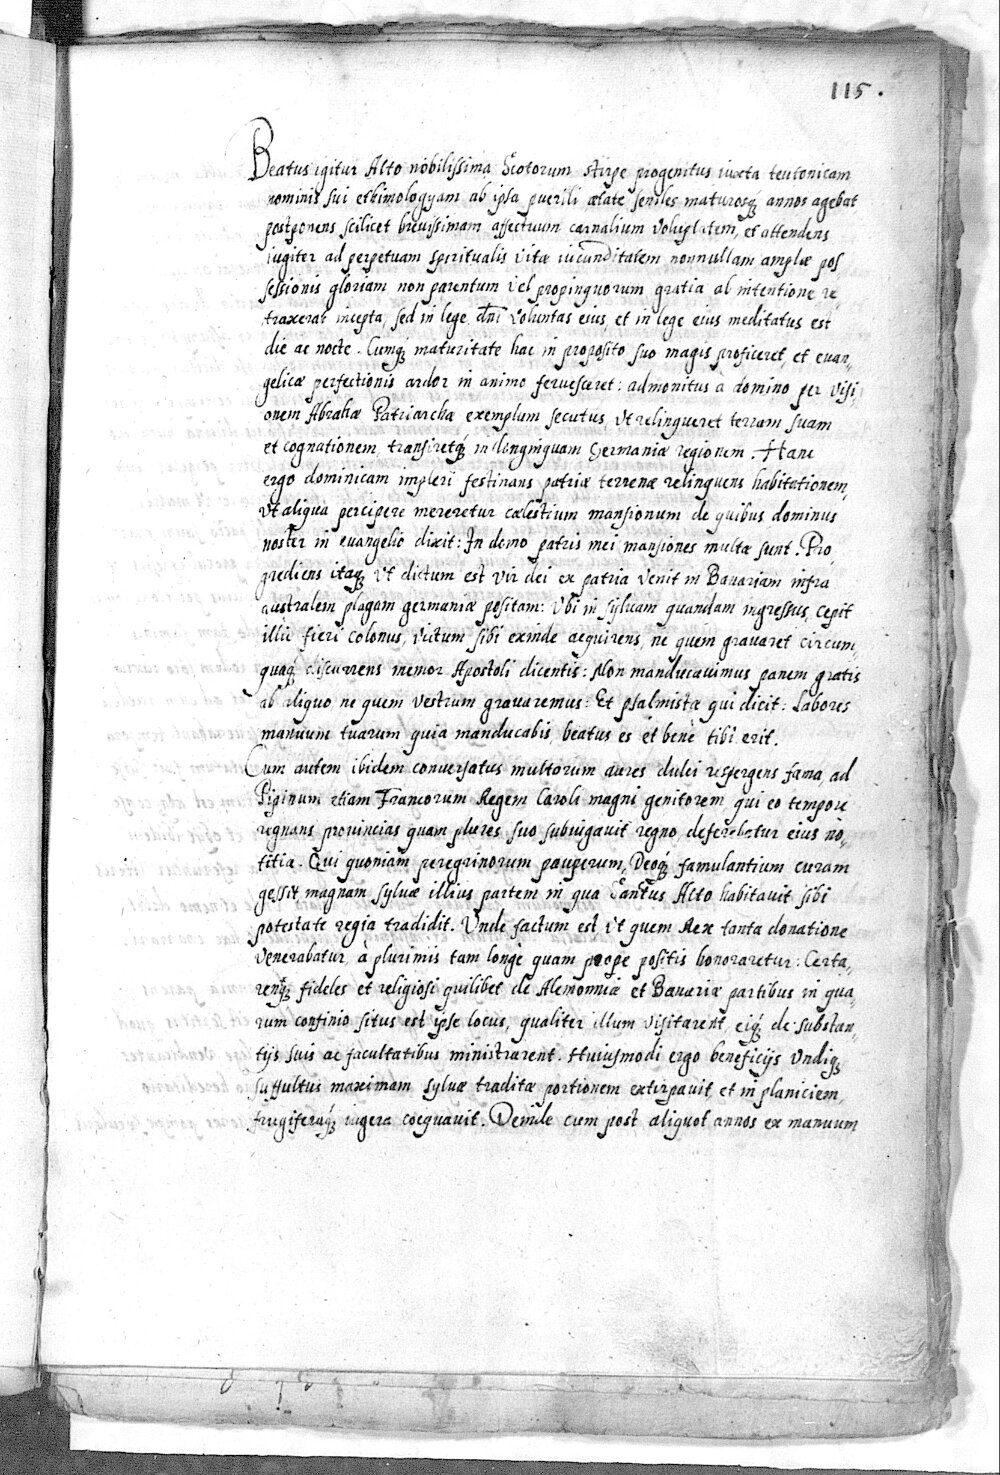 115.
Beatus igitur Alto nobilissima Scotorum stirpe progenitus iuxta teutonicam
nominis sui ethimologyam ab ipsa puerili ætate seniles maturosq́ annos agebat
postponens scilicet brevissimam affectuum carnalium voluptatem, et attendens
iugiter ad perpetuam spiritualis vitæ iucunditatem nonnullam amplæ pos,
sessionis gloriam non parentum vel propinquorum gratia ab intentione re,
traxerat incepta, sed in lege dni voluntas eius, et in lege eius meditatus est
die ac nocte. Cumq́ maturitate hac in proposito suo magis proficeret, et evan,
gelicæ perfectionis ardor in animo fervesceret: admonitus a domino per visi,
onem Abrahæ Patriarchæ exemplum secutus, vt relinqueret terram suam
et cognationem, transiretq́ in longinquam Germaniæ regionem. Hanc
ergo dominicam implerii festinans patriæ terrenæ relinquens habitationem,
vt aliqua percipere mereretur cælestium mansionum de quibus dominus
noster in evangelio dixit: In domo patris mei mansiones multæ sunt. Pro
grediens itaq́ vt dictum est vir dei ex patria venit in Bavariam infra
australem plagam germaniæ positam: vbi in sylvam quandam ingressus, cepit
illic fieri colonus, victum sibi exinde acquirens, ne quem gravaret circum,
quaq́ discurrens memor Apostoli dicentis: Non manducavimus panem gratis
ab aliquo ne quem vestrum gravaremus: Et psalmistæ qui dicit: Labores
manuum tuarum quia manducabis, beatus es et benè tibi erit.
Cum autem ibidem conversatus multorum aures dulci respergens fama, ad
Pipinum etiam Francorum Regem Caroli magni genitorem, qui eo tempore
regnans provincias quam plures, suo subiugavit regno, deferebatur eius no,
titia. Qui quoniam peregrinorum pauperum, Deoq́ famulantium curam
gessit magnam sylvæ illius partem in qua Sanctus Alto habitavit sibi
potestate regia tradidit. Vnde factum est vt quem Rex tanta donatione
venerabatur, à plurimis tam longè quam prope positis honoraretur: Certa,
rentq́ fideles et religiosi quilibet de Alemonniæ et Bavariæ partibus in qua,
rum confinio situs est ipse locus, qualiter illum visitarent, eiq́ de substan,
tijs suis ac facultatibus ministrarent. Huiusmodi ergo beneficijs vndiq́
suffultus maximam sylvæ traditæ portionem extirpavit, et in planiciem,
frugiferaq́ iugera coequavit. Deinde cum post aliquot annos ex manuum